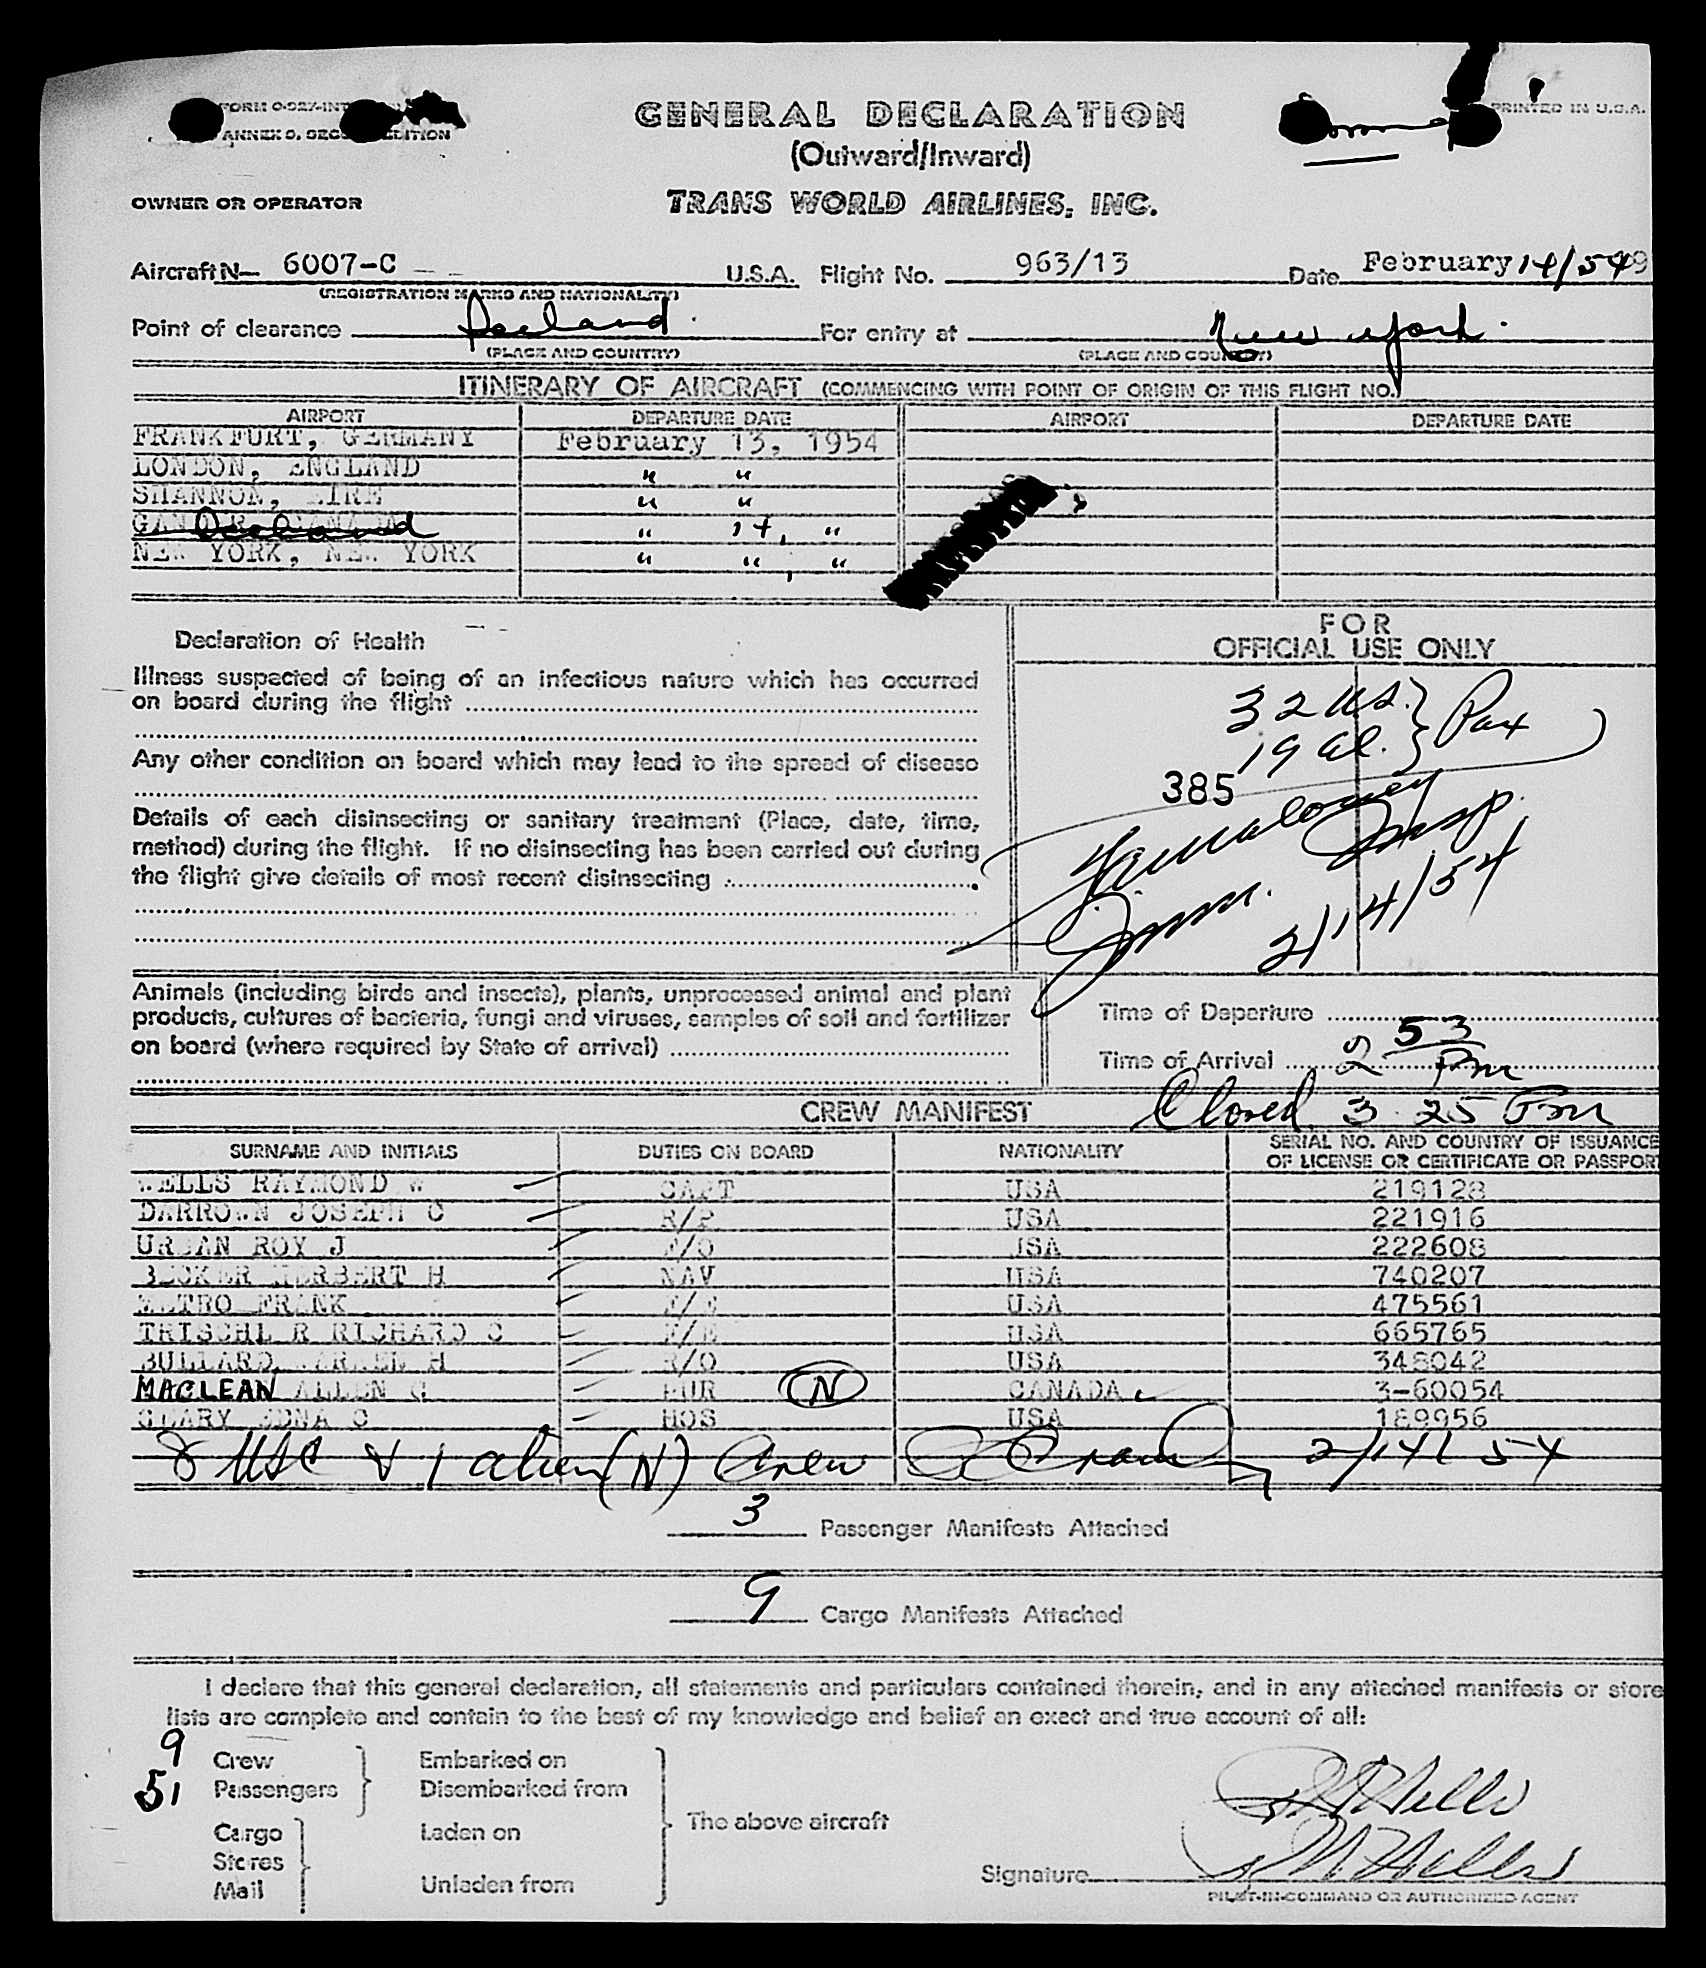 FORM O-927-INT
ANNEX 9, SECO EDITION
PRINTED IN U.S.A.
GENERAL DECLARATION
(Outward/Inward)
OWNER OR OPERATOR
TRANS WORLD AIRLINES, INC.
Aircraft N— 6007-C U.S.A. Flight No. 963/13 Date February 14/54 9
(REGISTRATION MARKS AND NATIONALITY)
Point of clearance Iceland For entry at New York.
(PLACE AND COUNTRY) (PLACE AND COUNTRY)
ITINERARY OF AIRCRAFT (COMMENCING WITH POINT OF ORIGIN OF THIS FLIGHT NO.)
AIRPORT DEPARTURE DATE AIRPORT DEPARTURE DATE
FRANKFURT, GERMANY February 13, 1954
LONDON, ENGLAND " "
SHANNON, EIRE " "
GANDER, CANADA Iceland " 14, "
NEW YORK, NEW YORK " ", "
Declaration of Health
FOR
OFFICIAL USE ONLY
Illness suspected of being of an infectious nature which has occurred
on board during the flight
32 US. } Pax
19 al.
Any other condition on board which may lead to the spread of disease
385
Details of each disinsecting or sanitary treatment (Place, date, time,
method) during the flight. If no disinsecting has been carried out during
the flight give details of most recent disinsecting
Imm. Insp.
2/14/54
Animals (including birds and insects), plants, unprocessed animal and plant
products, cultures of bacteria, fungi and viruses, samples of soil and fertilizer
on board (where required by State of arrival)
Time of Departure
Time of Arrival 2 53 Pm
CREW MANIFEST Closed 3 25 Pm
SURNAME AND INITIALS DUTIES ON BOARD NATIONALITY SERIAL NO. AND COUNTRY OF ISSUANCE
OF LICENSE OR CERTIFICATE OR PASSPORT
WELLS RAYMOND W CAPT USA 219128
DARROWN JOSEPH C R/P USA 221916
URBAN ROY J F/O USA 222608
BECKER HERBERT H NAV USA 740207
METRO FRANK F/E USA 475561
TRISCHL R RICHARD C F/E USA 665765
BULLARD WARREN H R/O USA 348042
MACLEAN ALLEN G PUR (N) CANADA 3-60054
GEARY EDNA C HOS USA 189956
8 USC & 1 alien (N) Crew 2/14/54
3 Passenger Manifests Attached
9 Cargo Manifests Attached
I declare that this general declaration, all statements and particulars contained therein, and in any attached manifests or store
lists are complete and contain to the best of my knowledge and belief an exact and true account of all:
9 Crew Embarked on
51 Passengers Disembarked from
The above aircraft
Cargo Laden on
Stores
Mail Unladen from
RW Wells
RW Wells
Signature
PILOT-IN-COMMAND OR AUTHORIZED AGENT